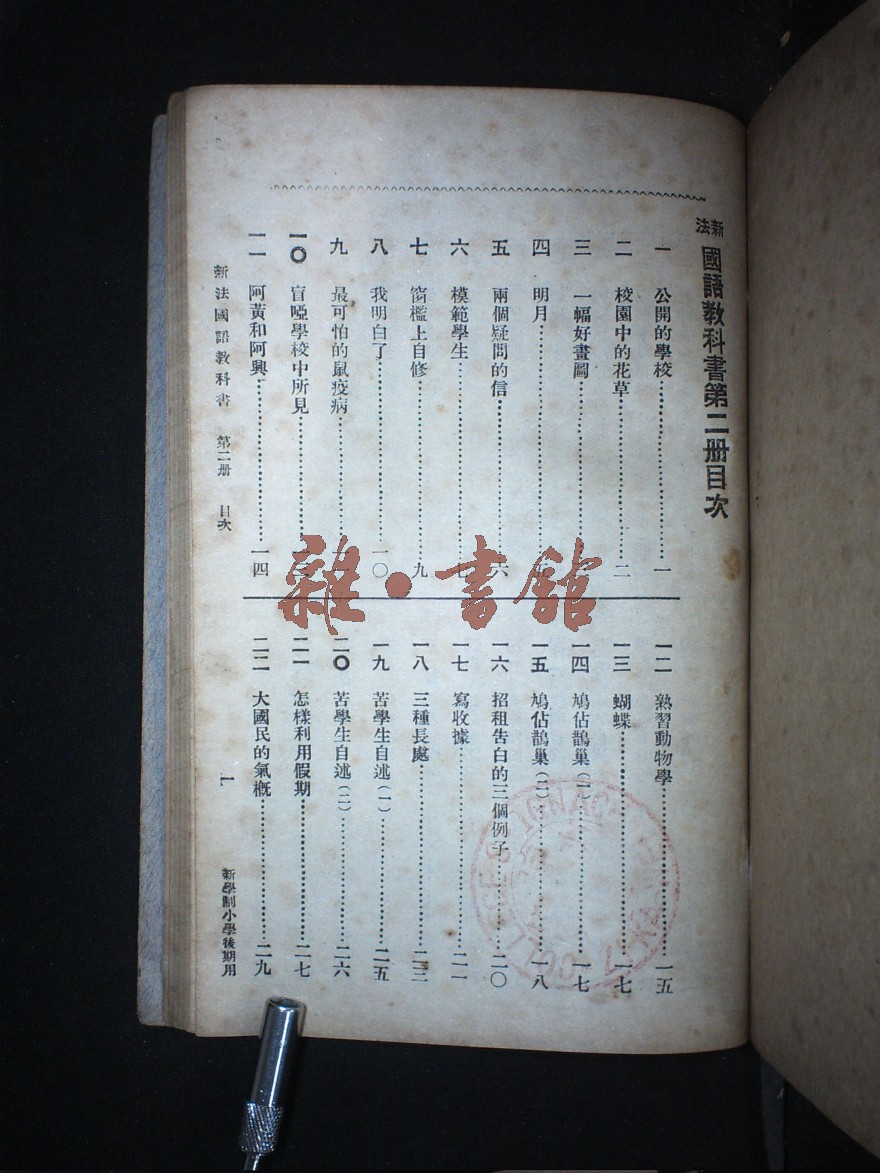 新法國語教科書第二册目次
一 公開的學校 一
二 校園中的花草 二
三 一幅好畫圖
四 明月 五
五 兩個疑問的信 六
六 模範學生 七
七 窗檻上自修 九
八 我明白了 一〇
九 最可怕的鼠疫病
一〇 盲啞學校中所見
一一 阿黃和阿興 一四
一二 熟習動物學 一五
一三 蝴蝶 一七
一四 鳩佔鵲巢(一) 一七
一五 鳩佔鵲巢(二) 一八
一六 招租告白的三個例子 二〇
一七 寫收據 二一
一八 三種長處 二三
一九 苦學生自述(一) 二五
二〇 苦學生自述(二) 二六
二一 怎樣利用假期 二七
二二 大國民的氣概 二九
新法國語教科書 第二册 目次 一 新學制小學後期用
雜·書館